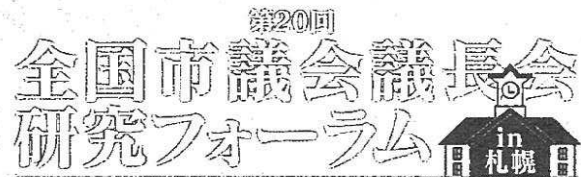 第20回
全国市議会議長会
研究フォーラム
in
札幌